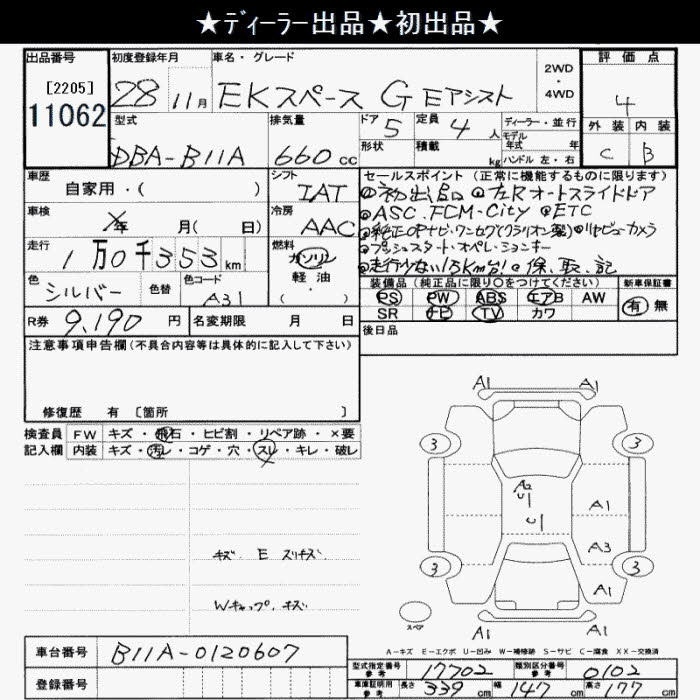 ★ﾃﾞｨｰﾗｰ出品★初出品★
出品番号 初度登録年月 車名・グレード 2WD・4WD 評価点
[2205]
11062
28 11月 EKスペース G Eアシスト 4
型式 排気量 ドア 定員 ディーラー・並行 外装 内装
DBA-B11A 660cc 5 4人 モデル年式 年 C B
形状 積載 kg ハンドル 左・右
車歴 シフト セールスポイント（正常に機能するものに限ります）
自家用・( ) IAT
車検 年 月( 日) 冷房 AAC
走行 1万0千353km 燃料 ガソリン・軽油・( )
色 シルバー 色替 色コード A31
◎初出品 ◎左Rオートスライドドア
◎ASC.FCM-City ◎ETC
◎純正OPナビ・ワンセグ(クラリオン製)◎リヤビューカメラ
◎プッシュスタート・オペレーションキー
◎走行少ない1万Km台!◎保、取、記
装備品（純正品に限り○をつけてください） 新車保証書
PS PW ABS エアB AW 有 無
SR ナビ TV カワ
R券 9,190円 名変期限 月 日 後日品
注意事項申告欄(不具合内容等は具体的に記入して下さい)
修復歴 有 [箇所 ]
検査員 FW キズ・飛石・ヒビ割・リペア跡・×要
記入欄 内装 キズ・汚レ・コゲ・穴・スレ・キレ・破レ
A1 A1
3 3
A2
U1 A1
U1
A3
3 3
A1
A1 A1
スペア
キズ E スリキズ
Wキャップ キズ
A-キズ E-エクボ U-凹み W-補修跡 S-サビ C-腐食 XX-交換済
車台番号 B11A-0120607
登録番号
型式指定番号 参考 17702 類別区分番号 参考 0102
車庫証明用 参考 長さ 339cm 幅 147cm 高さ 177cm